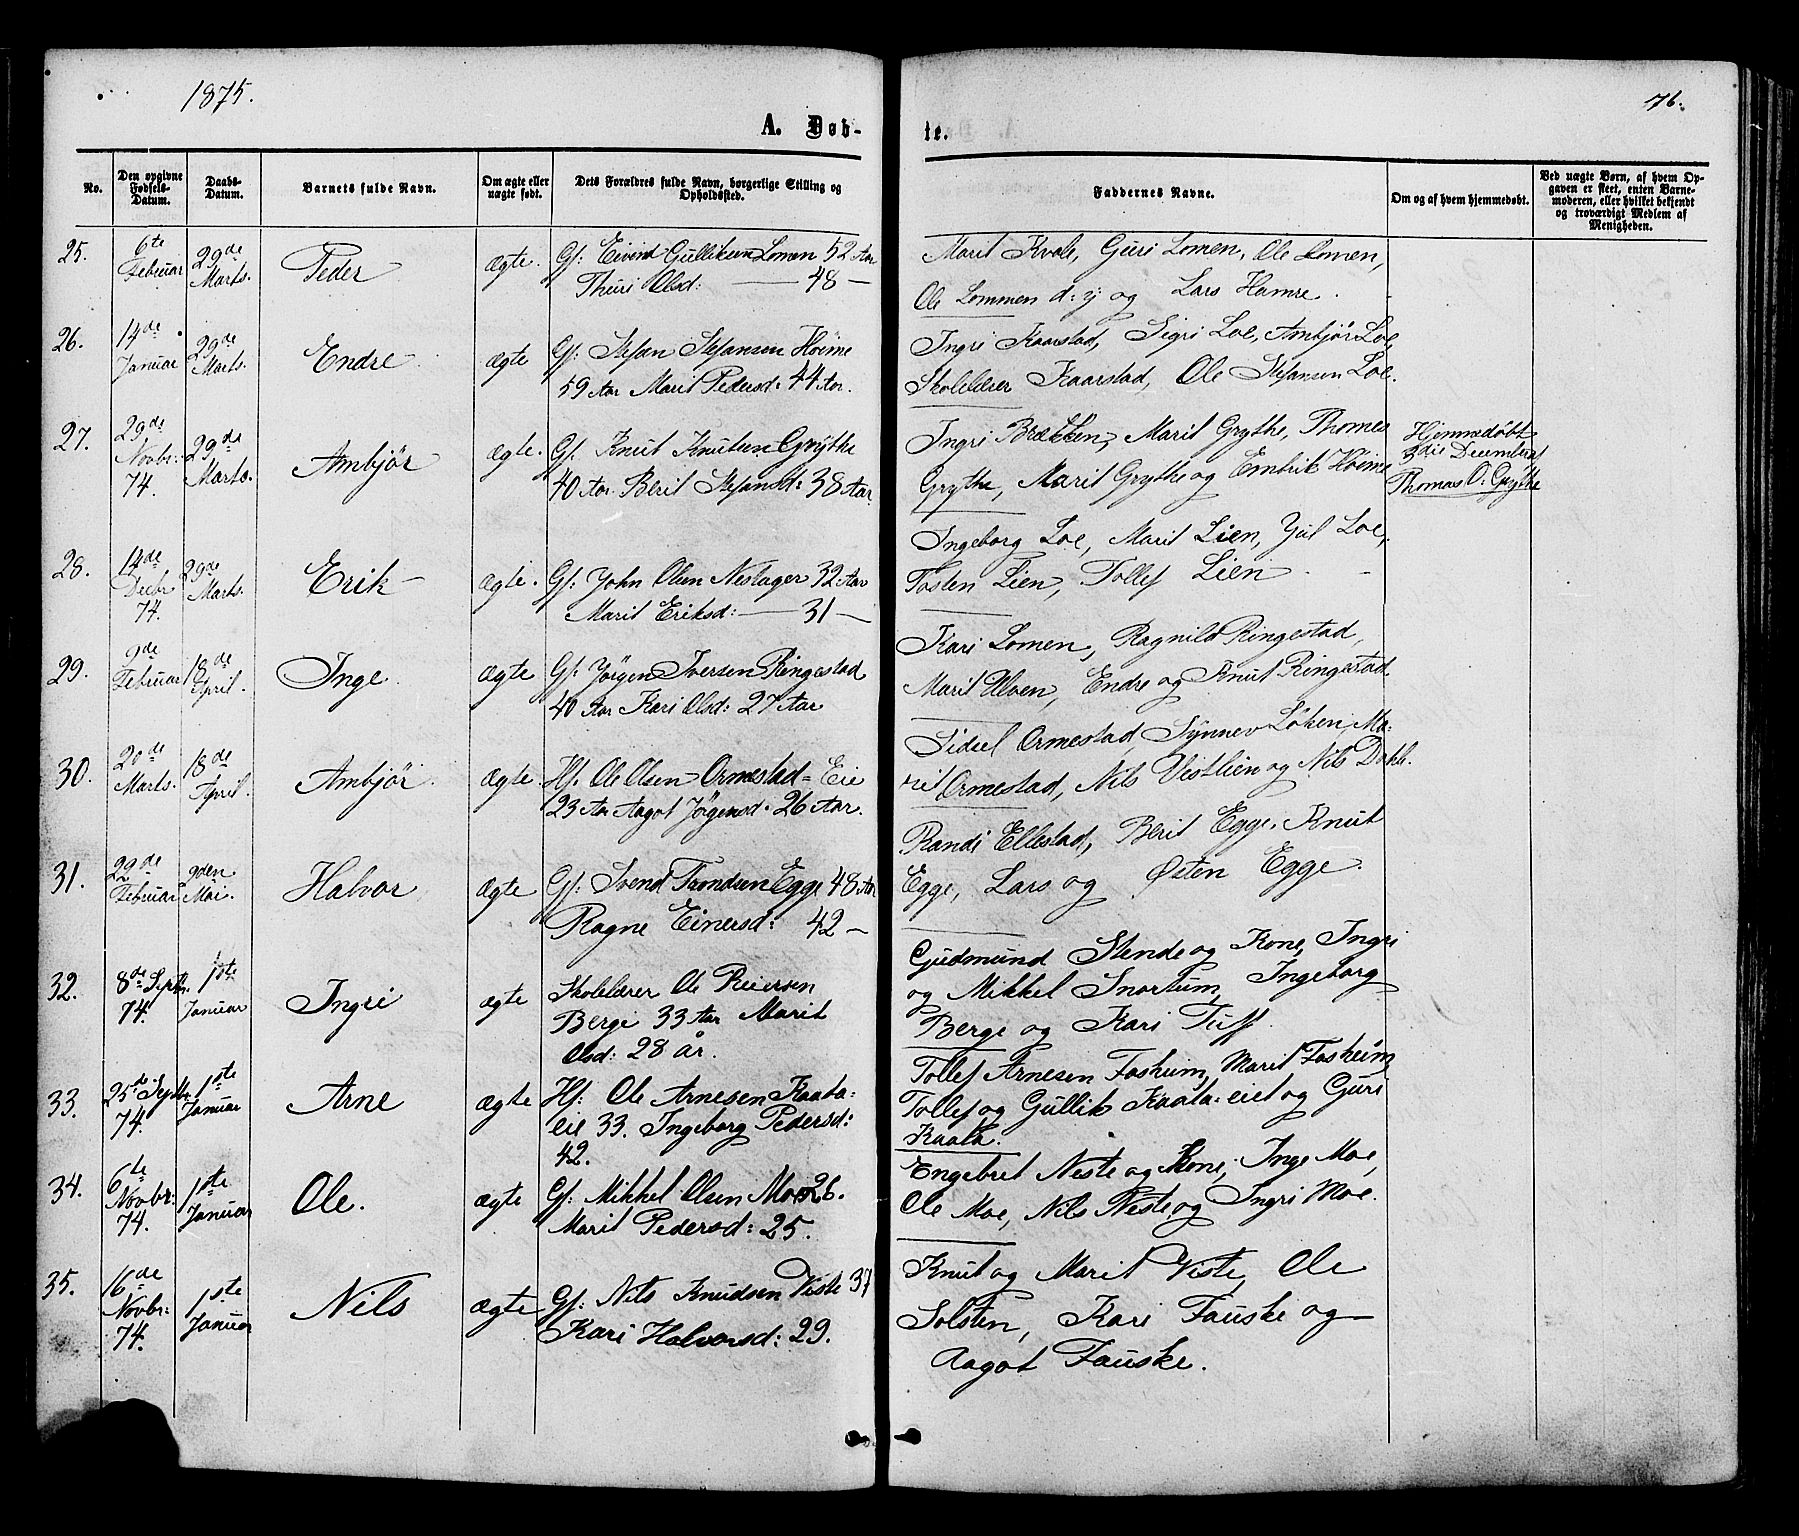 1875.
76.
A. Døb-
te.
No.
Den opgivne Fødsels-Datum.
Daabs-Datum.
Barnets fulde Navn.
Om ægte eller uægte født.
Dets Forældres fulde Navn, borgerlige Stilling og Opholdssted.
Faddernes Navne.
Om og af hvem hjemmedøbt.
Ved uægte Børn, af hvem Opgaven er skeet, enten Barnemoderen, eller hvilket bekjendt og troværdigt Medlem af Menigheden.
25. 6te Februar 29de Marts. Peder ægte. Gf: Eivind Gulliksen Lomen 52 Aar
Thuri Olsd: — 48 —
Marit Kvale, Guri Lomen, Ole Lomen,
Ole Lommen d: y og Lars Hamre.
26. 14de Januar 29de Marts. Endre ægte Gf: Stefan Stefansen Høime
59 Aar Marit Pedersd: 44 Aar.
Ingri Kaarstad, Sigri Loe, Ambjør Loe,
Skolelærer Kaarstad, Ole Stefansen Loe.
27. 29de Novbr: 74. 29de Marts. Ambjør ægte. Gf. Knut Knutsen Grythe
40 Aar Berit Stefansd: 38 Aar
Ingri Brækken, Marit Grythe, Thomes
Grythe, Marit Grythe og Embrik Høime
Hjemmedøbt
3die Decemberaf
Thomas O. Grythe
28. 14de Decbr 74. 29de Marts. Erik ægte. Gf: John Olsen Nestager 32 Aar
Marit Eriksd: — 31 —
Ingeborg Loe, Marit Lien, Jul Loe,
Tosten Lien, Tollef Lien
29. 9de Februar 18de April. Inge. ægte Gf: Jørgen Iversen Ringestad
40 Aar Kari Olsd: 27 Aar
Kari Lomen, Ragnild Ringestad,
Marit Ulven, Endre og Knut Ringestad.
30. 20de Marts. 18de April. Ambjør. ægte Hf. Ole Olsen Ormestad-Eie
23 Aar Aagot Jørgensd. 26 Aar.
Sidsel Ormestad, Synnev Løken, Ma-
rit Ormestad, Nils Vestlien og Nils Dahle.
31. 22de Februar 9den Mai. Halvor ægte Gf: Svend Trondsen Egge 48 Aar
Ragne Einersd: 42 —
Randi Ellestad, Berit Egge, Knut
Egge, Lars og Østen Egge.
32. 8de Septbr. 74. 1ste Januar Ingri ægte Skolelærer Ole Reiersen
Berge 33 Aar Marit
Olsd: 28 år.
Gudmund Stende og Kone, Ingri
og Mikkel Snortum, Ingeborg
Berge og Kari Tuff.
33. 25de Septbr. 74. 1ste Januar Arne ægte Hf: Ole Arnesen Kaata-
eie 33. Ingeborg Pedersd:
42.
Tollef Arnesen Fosheim, Marit Fosheim,
Tollef og Gullik Kaata-eiet og Guri
Kaata.
34. 6te Novbr: 74. 1ste Januar Ole. ægte Gf: Mikkel Olsen Moe 26.
Marit Pedersd: 25.
Engebret Neste og Kone, Inge Moe,
Ole Moe, Nils Neste og Ingri Moe.
35. 16de Novbr: 74. 1ste Januar Nils ægte Gf: Nils Knudsen Viste 37
Kari Halvorsd: 29.
Knut og Marit Viste, Ole
Solsten, Kari Fauske og
Aagot Fauske.